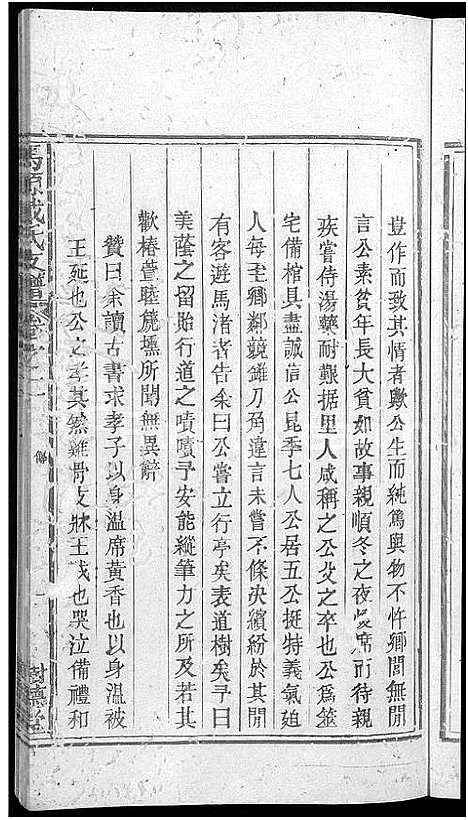 豈作而致其情者歟公生而純篤與物不忤鄉閭無閒
言公素貧年長大貧如故事親順冬之夜煖席而待親
疾嘗侍湯藥耐艱据里人咸稱之公父之卒也公爲筮
宅備棺具盡誠信公昆季七人公居五公挺特義氣廹
人每至鄉鄰競錐刀角違言未嘗不條决繽紛於其閒
有客遊馬渚者告余曰公嘗立行亭矣表道樹矣予曰
美蔭之留貽行道之嘖嘖予安能縱筆力之所及若其
歡椿萱睦篪壎所聞無異辭
贊曰余讀古書求孝子以身溫席黃香也以身溫被
王延也公之孝其然雞骨支牀王戎也哭泣備禮和
馬源戴氏支譜 卷
傳